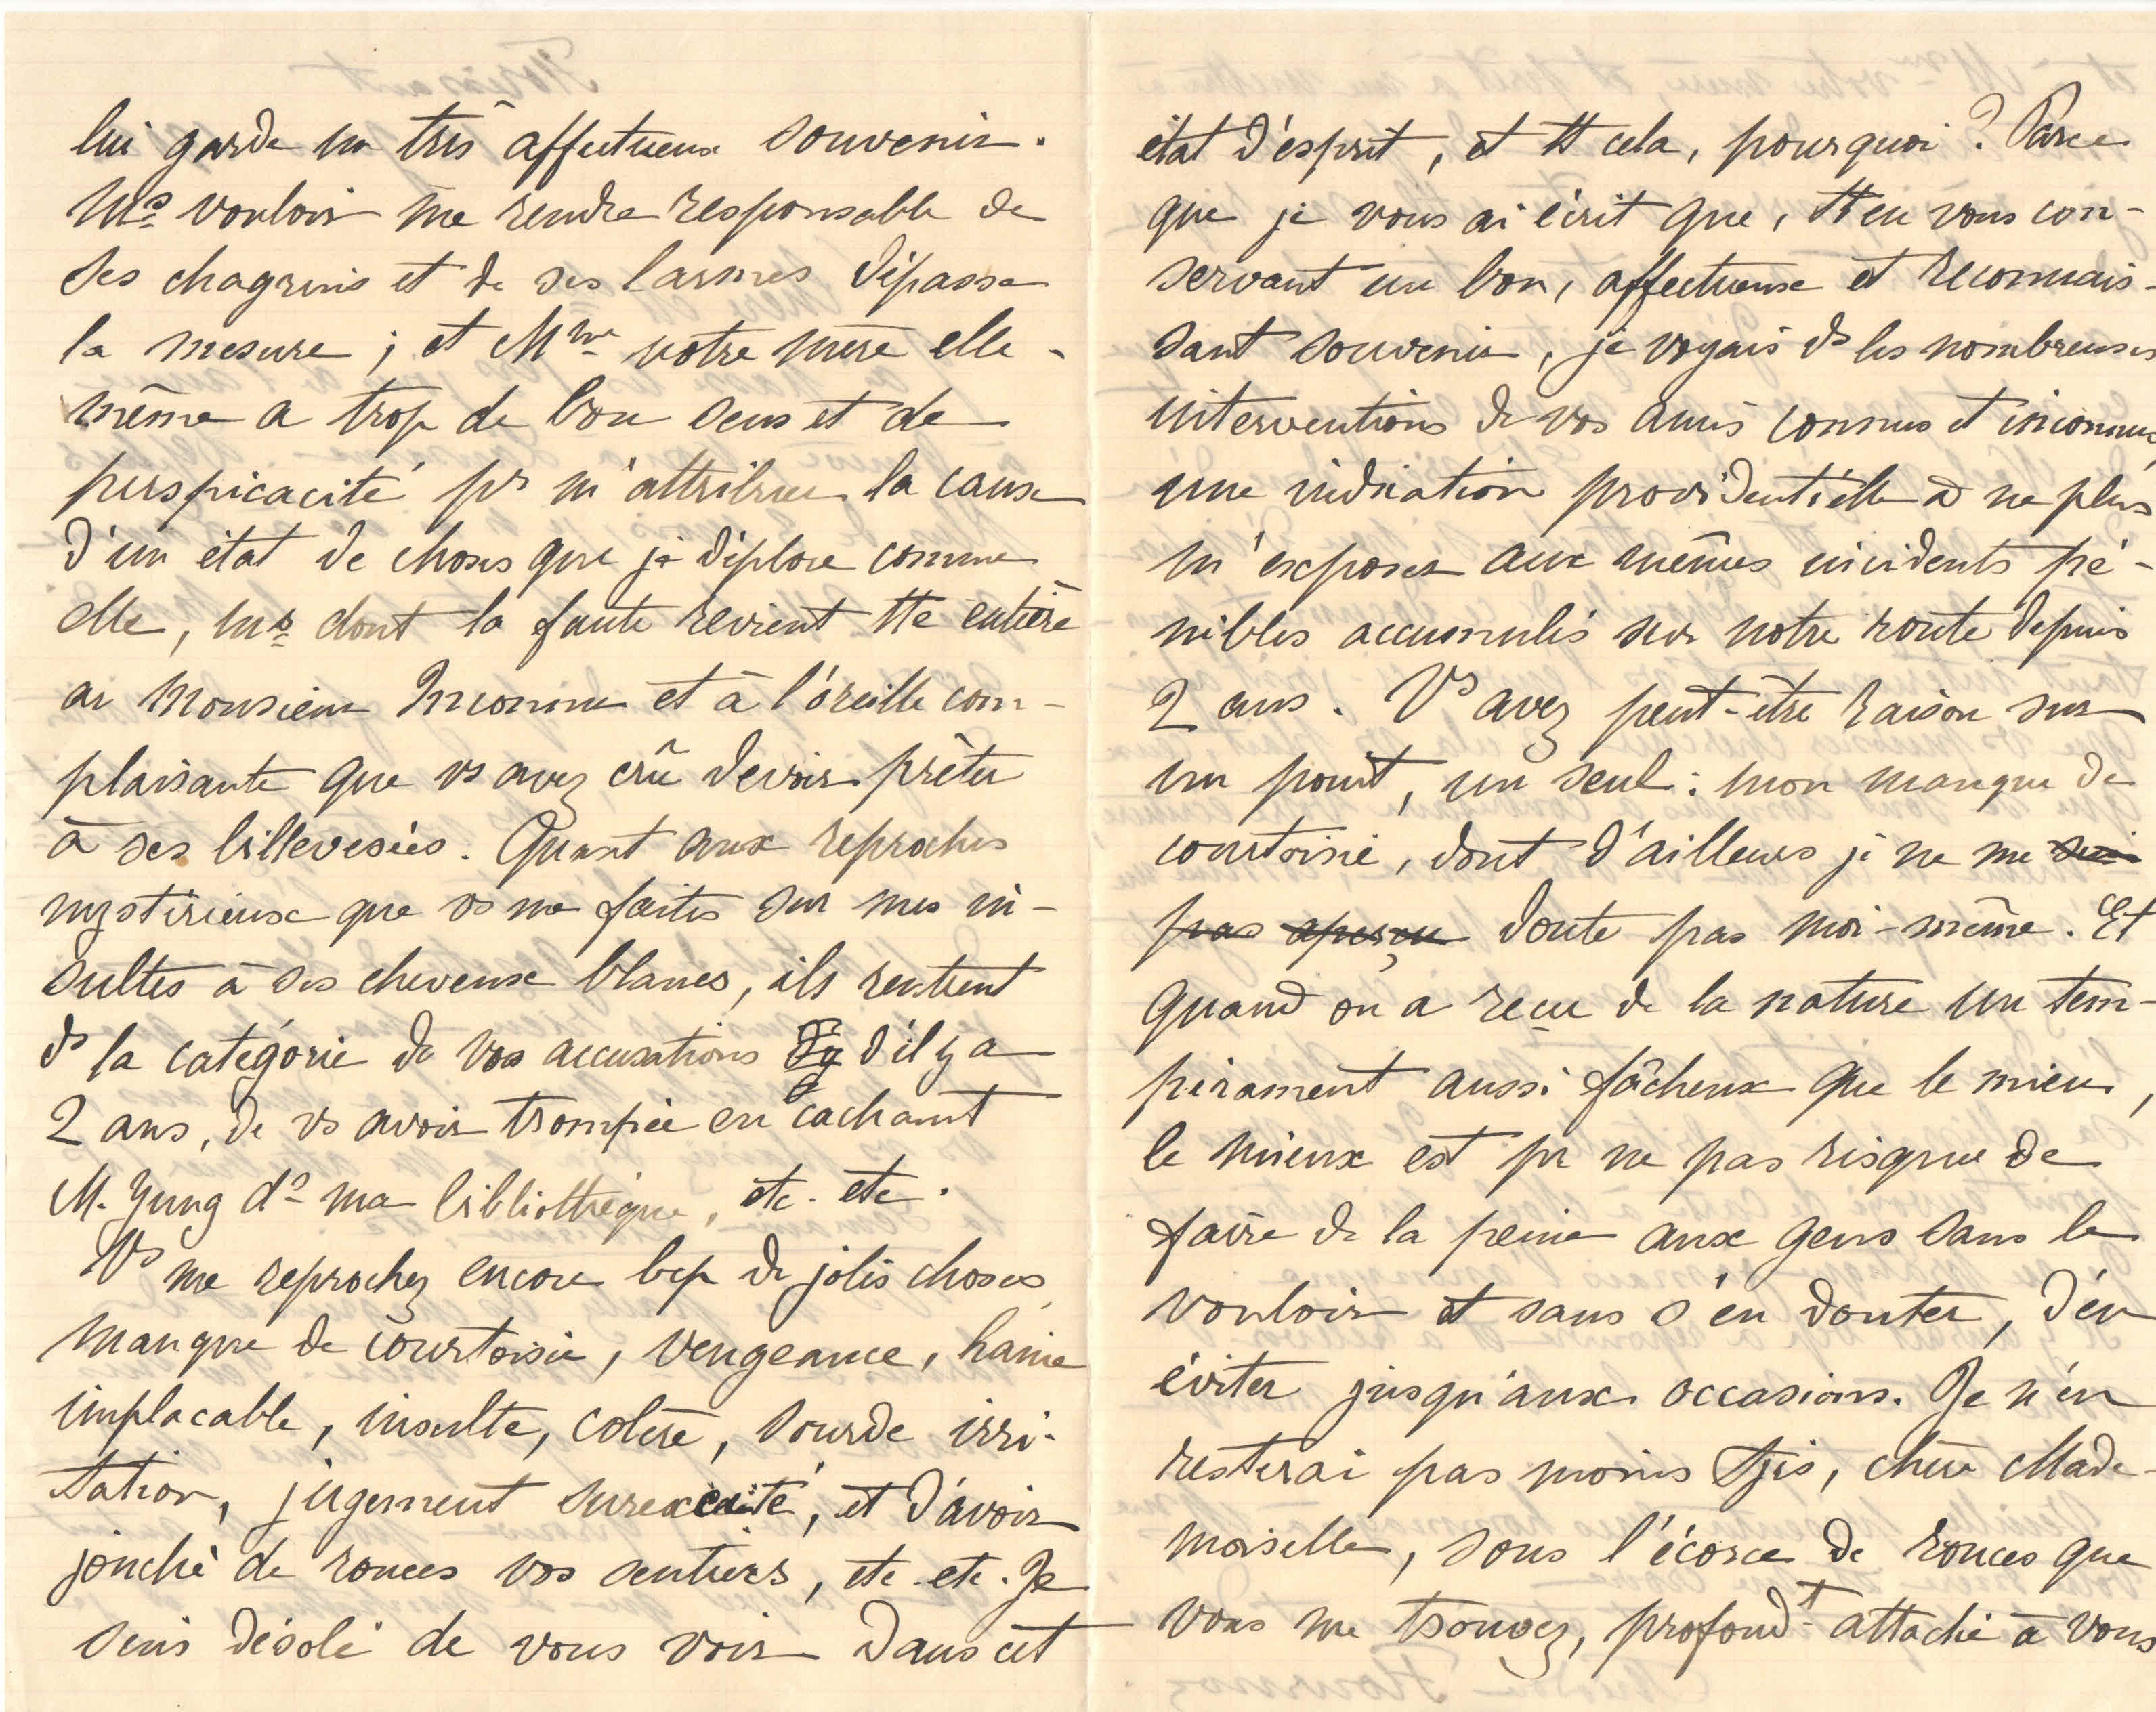 lui garde un très affectueux souvenir.
Ms vouloir me rendre responsable de
ses chagrins et de ses larmes dépasse
la mesure ; et Mme votre mère elle-
même a trop de bon sens et de
perspicacité pr m'attribuer la cause
d'un état de choses que je déplore comme
elle, ms dont la faute revient tte entière
au Monsieur Inconnu et à l'oreille com-
plaisante que vs avez crû devoir prêter
à ses billevesées. Quant aux reproches
mystérieux que vs me faites sur mes in-
sultes à ses cheveux blancs, ils rentrent
ds la catégorie de vos accusations d'il y a
2 ans, de vs avoir trompée en cachant
M. Yung ds ma bibliothèque, etc. etc.
Vs me reprochez encore bcp de jolis choses
manque de courtoisie, vengeance, haine
implacable, insulte, colère, sourde irri-
tation, jugement surexcité, et d'avoir
jonché de ronces vos sentiers, etc. etc. Je
suis désolé de vous voir dans cet
état d'esprit, et tt cela, pourquoi ? Parce
que je vous ai écrit que, tt en vous con-
servant un bon, affectueux et reconnais-
sant souvenir, je voyais ds les nombreuses
interventions de vos amis connus et inconnus
une indication providentielle à ne plus
m'exposer aux mêmes incidents pé-
nibles accumulés sur notre route depuis
2 ans. Vs avez peut-être raison sur
un point, un seul : mon manque de
courtoisie, dont d'ailleurs je ne me suis
pas aperçu doute pas moi-même. Et
quand on a reçu de la nature un tem-
pérament aussi fâcheux que le mien,
le mieux est pr ne pas risquer de
faire de la peine aux gens sans le
vouloir et sans s'en douter, d'en
éviter jusqu'aux occasions. Je n'en
resterai pas moins tjrs, chère Made-
moiselle, sous l'écorce de ronces que
vous me trouvez, profondt attaché à vous